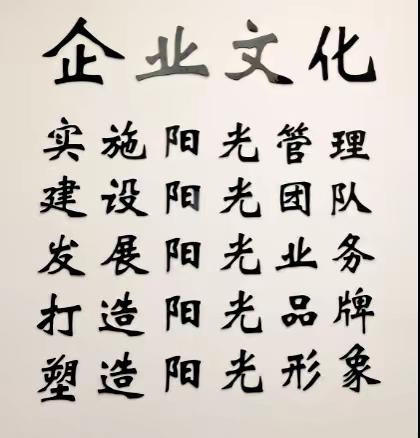 企业文化
实施阳光管理
建设阳光团队
发展阳光业务
打造阳光品牌
塑造阳光形象